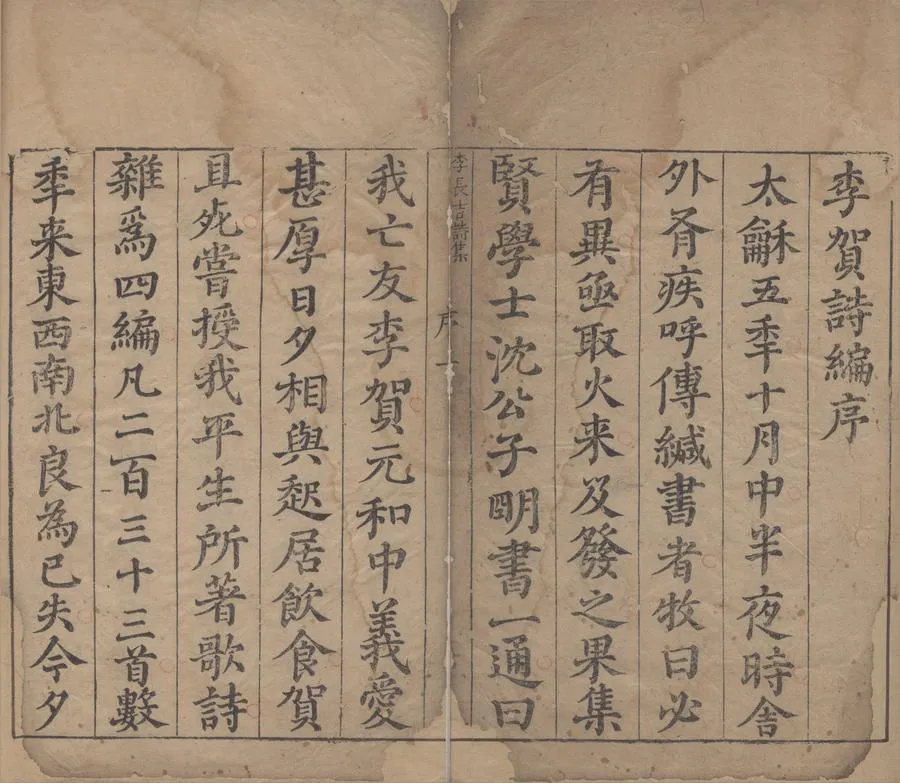 李賀詩編序
太龢五秊十月中半夜時舎
外有疾呼傳緘書者牧曰必
有異亟取火来及發之果集
賢學士沈公子明書一通曰
李長吉詩集 序 一
我亡友李賀元和中義愛
甚厚日夕相與起居飲食賀
且死嘗授我平生所著歌詩
雜爲四編凡二百三十三首數
秊来東西南北良為已失今夕